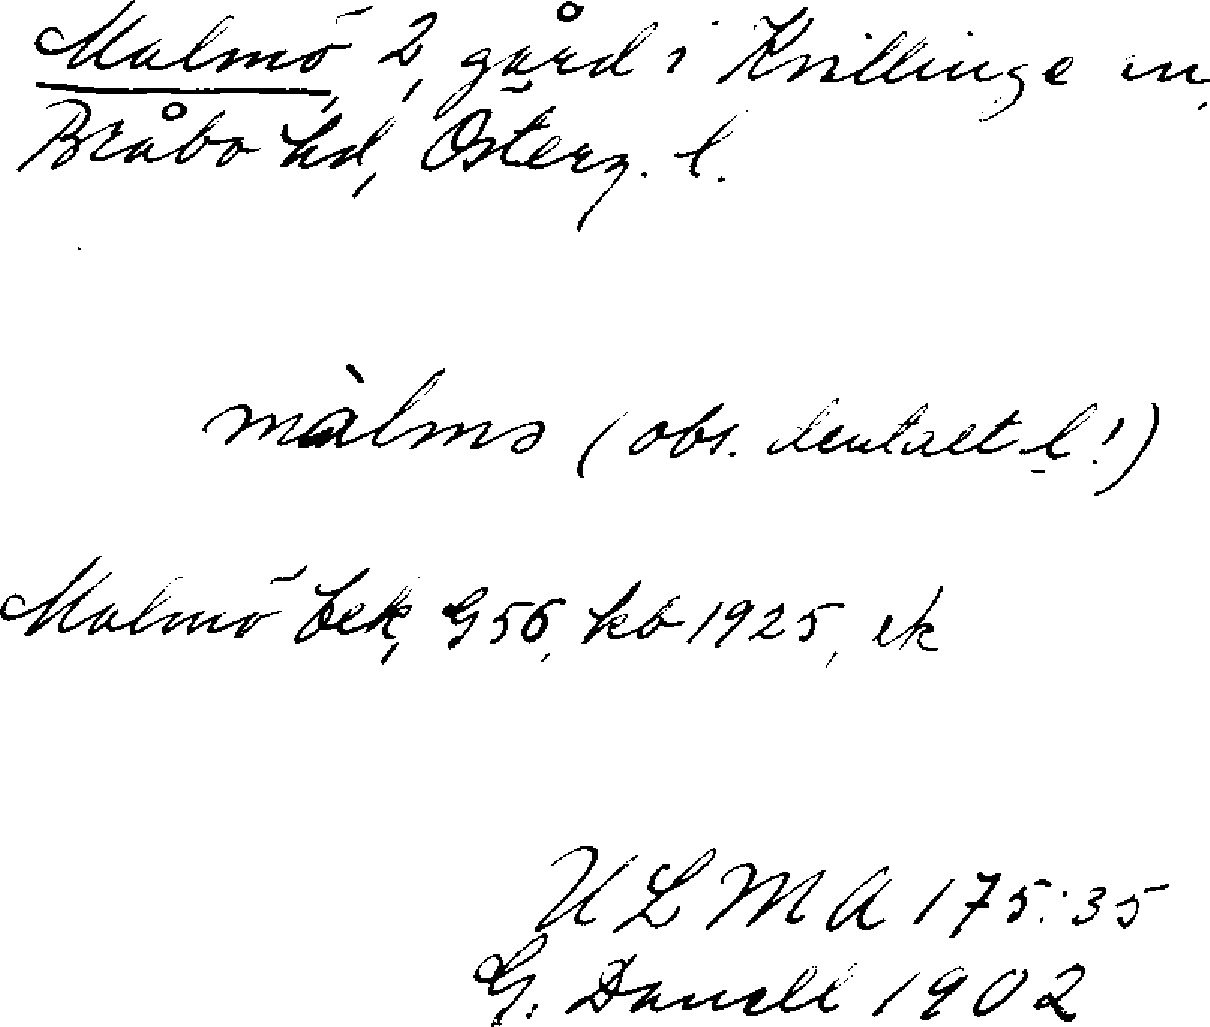 Malmö 2, gård i Kvillinge sn,
Bråbo hd, Österg. l.
màlmə (obs. dentalt l!)
Malmö bek, G 56, kb 1925, ek
ULMA 175:35
G. Danell 1902